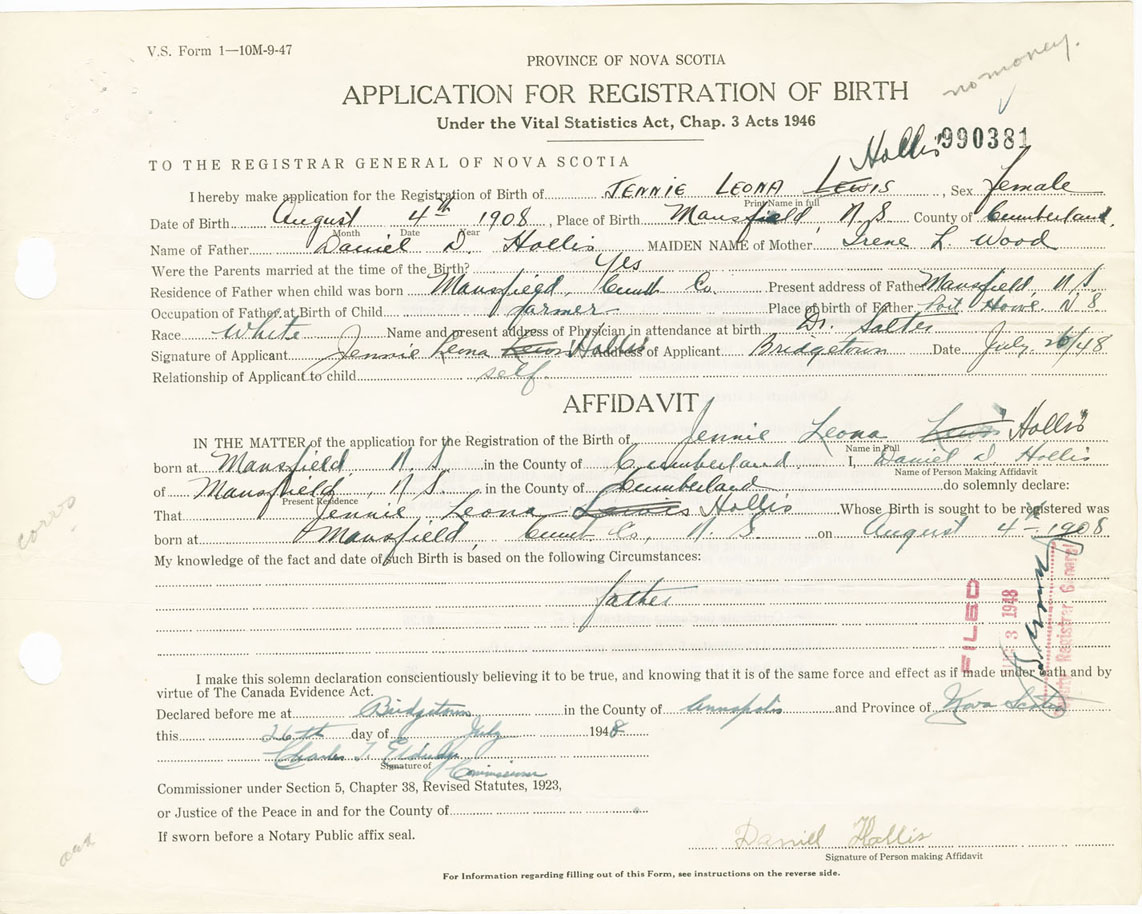 V.S. Form 1—10M-9-47
no money.
PROVINCE OF NOVA SCOTIA
APPLICATION FOR REGISTRATION OF BIRTH
Under the Vital Statistics Act, Chap. 3 Acts 1946
990381
TO THE REGISTRAR GENERAL OF NOVA SCOTIA
Hollis
I hereby make application for the Registration of Birth of JENNIE LEONA LEWIS, Sex female
Print Name in full
Date of Birth August 4th 1908, Place of Birth Mansfield, N.S County of Cumberland.
Month Date Year
Name of Father Daniel D. Hollis MAIDEN NAME of Mother Irene L. Wood
Were the Parents married at the time of the Birth? Yes
Residence of Father when child was born Mansfield, Cumb Co. Present address of Father Mansfield N.S.
Occupation of Father at Birth of Child farmer Place of birth of Father Port Howe. N S.
Race White Name and present address of Physician in attendance at birth Dr. Salter
Signature of Applicant Jennie Leona Lewis Hollis Address of Applicant Bridgetown Date July 26/48
Relationship of Applicant to child self.
AFFIDAVIT
IN THE MATTER of the application for the Registration of Birth of Jennie Leona Lewis "Hollis"
Name in Full
born at Mansfield N.S. in the County of Cumberland. I, Daniel D Hollis
Name of Person Making Affidavit
of Mansfield, N.S. in the County of Cumberland do solemnly declare:
Present Residence
That Jennie Leona Lewis Hollis Whose Birth is sought to be registered was
born at Mansfield, Cumb Co, N. S. on August 4th 1908
corres
My knowledge of the fact and date of such Birth is based on the following Circumstances:
father
FILED
3 1948
Deputy Registrar General
I make this solemn declaration conscientiously believing it to be true, and knowing that it is of the same force and effect as if made under oath and by
virtue of The Canada Evidence Act.
Declared before me at Bridgetown in the County of Annapolis and Province of Nova Scotia
this 26th day of July 1948
Charles
Signature of
Commissioner
Commissioner under Section 5, Chapter 38, Revised Statutes, 1923,
or Justice of the Peace in and for the County of
If sworn before a Notary Public affix seal.
Daniel Hollis
Signature of Person making Affidavit
For Information regarding filling out of this Form, see instructions on the reverse side.